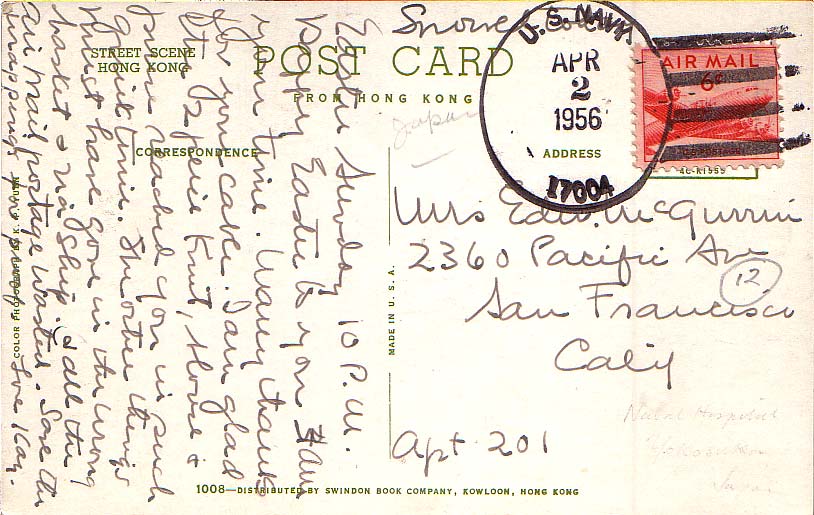 STREET SCENE
HONG KONG
POST CARD
FROM HONG KONG
CORRESPONDENCE
ADDRESS
U.S. NAVY
APR
2
1956
17004
AIR MAIL
6¢
Japan
Mrs Edw. McGurrin
2360 Pacific Ave
San Francisco
Calif
12
Apt 201
Naval Hospital
Yokosuka
Japan
MADE IN U.S.A.
1008—DISTRIBUTED BY SWINDON BOOK COMPANY, KOWLOON, HONG KONG
COLOR PHOTOGRAPH BY K.
Easter Sunday 10 P.M.
Happy Easter to you &
your time. Many thanks
for you cake. I am glad
knit, &
reached you in such
quick time. The other things
must have gone in the wrong
basket & via ship. & all the
air mail postage wasted. Save the
wrappings for proof. Love Kay.